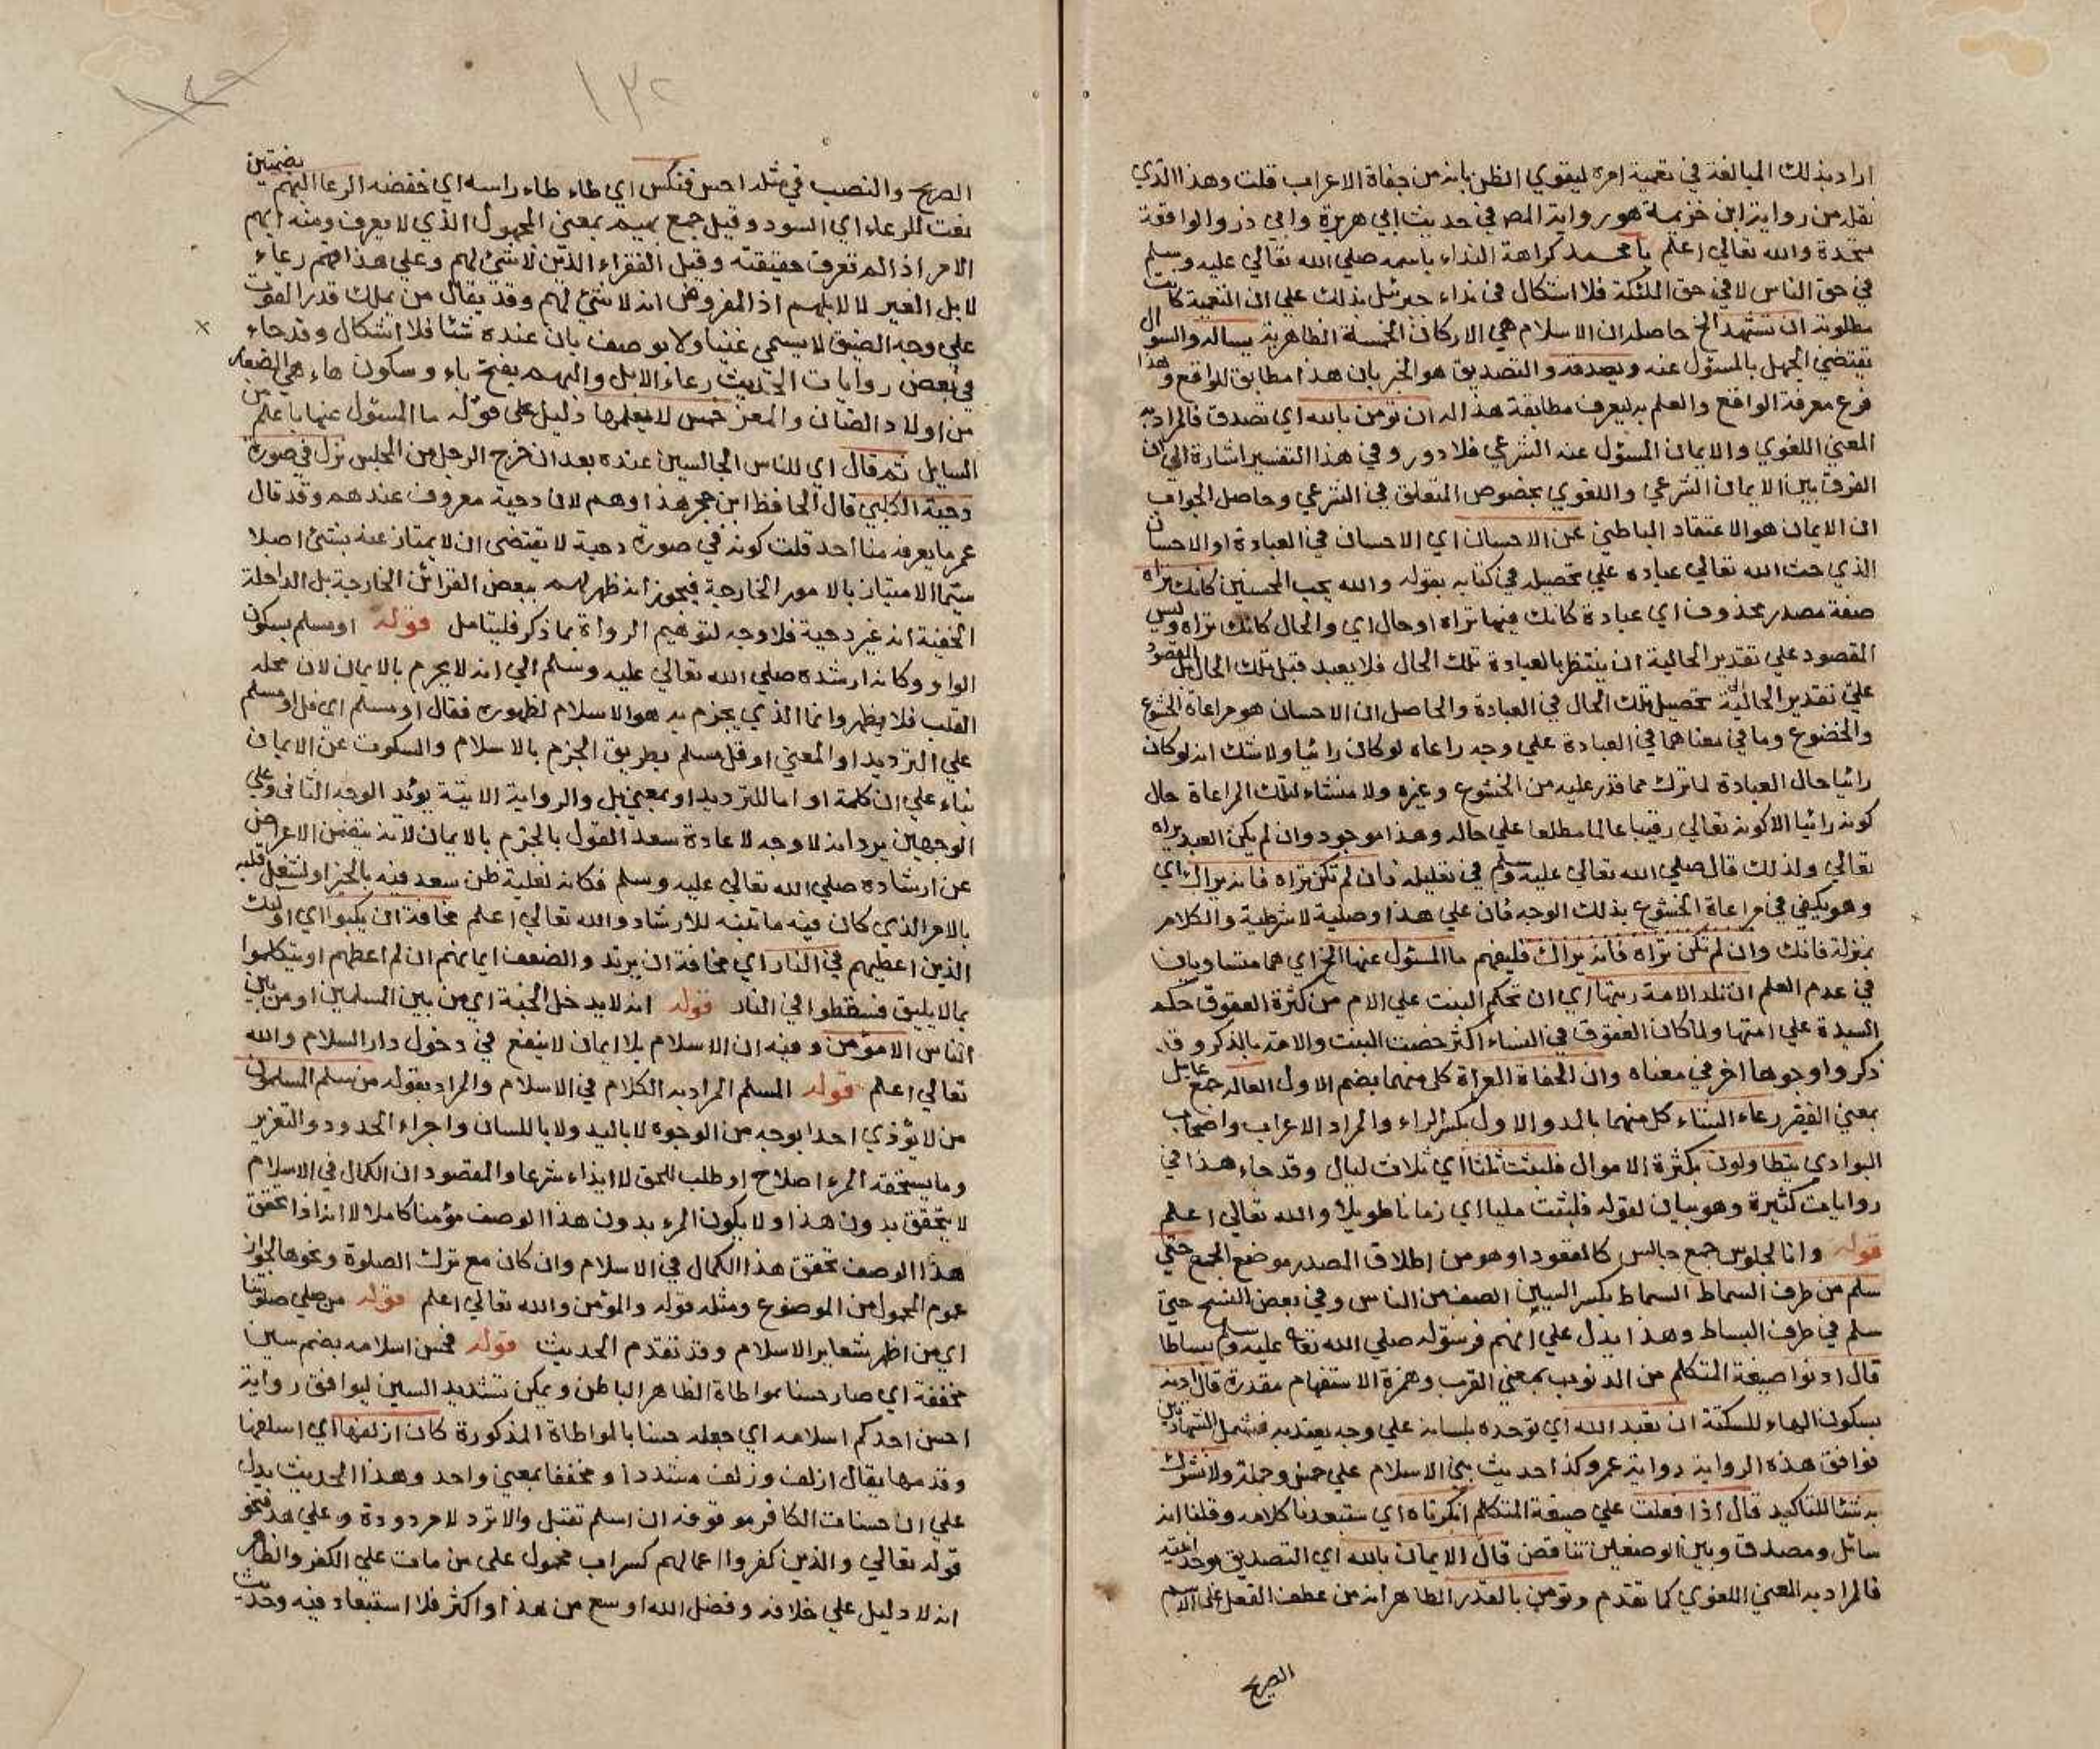 اراد بذلك المبالغة في تعمية امره ليقوي الظن بانه من جفاة الاعراب قلت وهذا الذي
نقله من رواية ابن خزيمة هو رواية المص في حديث ابي هريرة وابي ذر والواقعة
متحدة والله تعالى اعلم يا محمد كراهة النداء باسمه صلي الله تعالي عليه وسلم
في حق الناس لا في حق الملئكة فلا اشكال في نداء جبرئيل بذلك علي ان التعمية كانت
مطلوبة ان تشهد الخ حاصله ان الاسلام هي الاركان الخمسة الظاهرية يساله والسوال
يقتضي الجهل بالمسئول عنه ويصدقه والتصديق هو الخبر بان هذا مطابق للواقع وهذا
فرع معرفة الواقع والعلم به ليعرف مطابقة هذا له ان تؤمن بالله اي تصدق فالمراد به
المعني اللغوي والايمان المسئول عنه الشرعي فلا دور وفي هذا التفسير اشارة الي ان
الفرق بين الايمان الشرعي واللغوي بخصوص المتعلق في الشرعي وحاصل الجواب
ان الايمان هو الاعتقاد الباطني عن الاحسان اي الاحسان في العبادة او الاحسان
الذي حث الله تعالي عباده علي تحصيله في كتابه بقوله والله يحب المحسنين كانك تراه
صفة مصدر محذوف اي عبادة كانك فيها تراه او حال اي والحال كانك تراه وليس
المقصود علي تقدير الحالية ان ينتظر بالعبادة تلك الحال فلا يعبد قبل تلك الحال بل المقصود
علي تقدير الحالية تحصيل تلك الحال في العبادة والحاصل ان الاحسان هو مراعاة الخشوع
والخضوع وما في معناهما في العبادة علي وجه راعاه لو كان رائيا ولا شك انه لو كان
رائيا حال العبادة لما ترك مما قدر عليه من الخشوع وغيره ولا منشاء لتلك المراعاة حال
كونه رائيا الا كونه تعالي رقيبا عالما مطلعا علي حاله وهذا موجود وان لم يكن العبد يراه
تعالي ولذلك قال صلي الله تعالي عليه وسلم في تعليله فان لم تكن تراه فانه يراك اي
وهو يكفي في مراعاة الخشوع بذلك الوجه فان علي هذا وصلية لا شرطية والكلام
بمنزلة فانك وان لم تكن تراه فانه يراك فليفهم ما المسئول عنها الخ اي هما متساويان
في عدم العلم ان تلد الامة ربتها اي ان تحكم البنت علي الام من كثرة العقوق حكم
السيدة علي امتها ولما كان العقوق في النساء اكثر خصت البنت والامة بالذكر وقد
ذكروا وجوها اخر في معناه وان الحفاة العراة كل منهما بضم الاول العالة جمع عايل
بمعني الفقير رعاء الشاء كل منهما بالمد والاول بكسر الراء والمراد الاعراب واصحاب
البوادي يتطاولون بكثرة الاموال فلبثت ثلثا اي ثلاث ليال وقد جاء هذا في
روايات كثيرة وهو بيان لقوله فلبثت مليا اي زمانا طويلا والله تعالي اعلم
قوله وانا لجلوس جمع جالس كالقعود او هو من اطلاق المصدر موضع الجمع حتي
سلم من طرف السماط السماط بكسر السين الصف من الناس وفي بعض النسخ حتي
سلم في طرف البساط وهذا يدل علي انهم فرشوا له صلي الله تعا عليه وسلم بساطا
قال ادنو صيغة المتكلم من الدنو بمعني القرب وهمزة الاستفهام مقدرة قال ادنه
بسكون الهاء للسكتة ان تعبد الله اي توحده بلسانه علي وجه يعتد به فيشمل الشهادتين
فوافق هذه الرواية رواية عمر وكذا حديث بني الاسلام علي خمس وجملة ولا تشرك
به شئا للتاكيد قال اذا فعلت علي صيغة المتكلم انكرناه اي ستبعدنا كلامه وقلنا انه
سائل ومصدق وبين الوصفين تناقض قال الايمان بالله اي التصديق بوحدانيته
فالمراد به المعني اللغوي كما تقدم وتؤمن بالقدر الظاهر انه من عطف الفعل علي الاسم
الصريح
١٣٢
الصريح والنصب في مثله احسن فنكس اي طاء طاء راسه اي خفضه الرعا البهم بضمتين
نعت للرعاء اي السود وقيل جمع بهيم بمعني المجهول الذي لا يعرف ومنه ابهم
الامر اذا لم تعرف حقيقته وقيل الفقراء الذين لا شئ لهم وعلي هذا فهم رعاء
لابل الغير لا لابلهم اذ المفروض انه لا شئ لهم وقد يقال من يملك قدر القوت
علي وجه الضيق لا يسمي غنيا ولا يوصف بان عنده شئا فلا اشكال وقد جاء
في بعض روايات الحديث رعاء الابل والبهم بفتح باء وسكون هاء هي الصغار
من اولاد الضان والمعز خمس لا يعلمها دليل علي قوله ما المسئول عنها باعلم من
السايل ثم قال اي للناس الجالسين عنده بعد ان خرج الرجل من المجلس نزل في صورة
دحية الكلبي قال الحافظ ابن حجر هذا وهم لان دحية معروف عندهم وقد قال
عمر ما يعرفه منا احد قلت كونه في صورة دحية لا يقتضي ان لا يمتاز عنه بشئ اصلا
سيما الامتياز بالامور الخارجية فيجوز انه ظهر لهم ببعض القرائن الخارجية بل الداخلة
الخفية انه غير دحية فلا وجه لتوهيم الرواة بما ذكر فليتامل قوله او مسلم بسكون
الواو وكانه ارشده صلي الله تعالي عليه وسلم الي انه لا يجزم بالايمان لان محله
القلب فلا يظهر وانما الذي يجزم به هو الاسلام لظهوره فقال او مسلم اي قل او مسلم
علي الترديد او المعني او قل مسلم بطريق الجزم بالاسلام والسكوت عن الايمان
بناء علي ان كلمة او اما للترديد او بمعني بل والرواية الاتية يؤيد الوجه الثاني وعلي
الوجهين يرد انه لا وجه لاعادة سعد القول بالجزم بالايمان لانه يتضمن الاعراض
عن ارشاده صلي الله تعالي عليه وسلم فكانه لغلبة ظن سعد فيه بالخير او لشغل قلبه
بالامر الذي كان فيه ما تنبه للارشاد والله تعالي اعلم مخافة ان يكبوا اي اولئك
الذين اعطيهم في النار اي مخافة ان يرتد والضعف ايمانهم ان لم اعطهم او يتكلموا
بما لا يليق فسقطوا في النار قوله انه لا يدخل الجنة اي من بين المسلمين او من بين
الناس الا مؤمن وفيه ان الاسلام بلا ايمان لا ينفع في دخول دار السلام والله
تعالي اعلم قوله المسلم المراد به الكلام في الاسلام والمراد بقوله من سلم المسلمون
من لا يؤذي احدا بوجه من الوجوه لا باليد ولا باللسان واجراء الحدود والتعزير
وما يستحقه المرء اصلاح او طلب للحق لا ايذاء شرعا والمقصود ان الكمال في الاسلام
لا يتحقق بدون هذا ولا يكون المرء بدون هذا الوصف مؤمنا كاملا لا انه اذا تحقق
هذا الوصف تحقق هذا الكمال في الاسلام وان كان مع ترك الصلوة ونحوها لجواز
عموم المحمول من الموضوع ومثله قوله والمؤمن والله تعالي اعلم قوله من صلي صلوتنا
اي من اظهر شعاير الاسلام وقد تقدم الحديث قوله فحسن اسلامه بضم سين
مخففة اي صار حسنا بمواطاة الظاهر الباطن ويمكن تشديد السين ليوافق رواية
احسن احدكم اسلامه اي جعله حسنا بالمواطاة المذكورة كان ازلفها اي اسلفها
وقدمها يقال ازلف وزلف مشددا ومخففا بمعني واحد وهذا الحديث يدل
علي ان حسنات الكافر موقوفة ان اسلم تقبل والا ترد لا مردودة وعلي هذا فنحو
قوله تعالي والذين كفروا اعمالهم كسراب محمول علي من مات علي الكفر والظاهر
انه لا دليل علي خلافه وفضل الله اوسع من هذا واكثر فلا استبعاد فيه وحديث